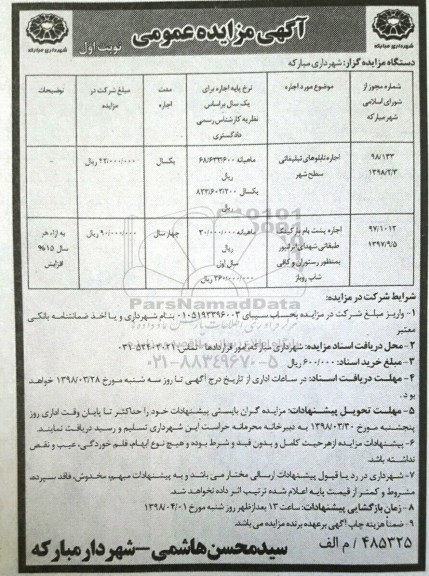 آگهی مزایده عمومی
نوبت اول
شهرداری مبارکه
شهرداری مبارکه
دستگاه مزایده گزار: شهرداری مبارکه
شماره مجوز از شورای اسلامی شهر مبارکه
موضوع مورد اجاره
نرخ پایه اجاره برای یک سال براساس نظریه کارشناس رسمی دادگستری
مدت اجاره
مبلغ شرکت در مزایده
توضیحات
۹۸/۱۳۳
۱۳۹۸/۲/۳
اجاره تابلوهای تبلیغاتی سطح شهر
ماهیانه ۶۸/۶۳۳/۶۰۰ ریال
یکسال ۸۲۳/۶۰۳/۲۰۰ ریال
یکسال
۴۲/۰۰۰/۰۰۰ ریال
-
۹۷/۱۰۱۲
۱۳۹۷/۹/۵
اجاره پشت بام پارکینگ طبقاتی شهدای ایرانپور بمنظور رستوران و کافی شاپ روباز
ماهیانه ۳۰/۰۰۰/۰۰۰ ریال
سال اول
۳۶۰/۰۰۰/۰۰۰ ریال
چهار سال
۹۰/۰۰۰/۰۰۰ ریال
به ازاء هر سال ۱۵% افزایش
ParsNamadData
۰۲۱-۸۸۳۴۹۶۷۰-۵
شرایط شرکت در مزایده:
۱- واریز مبلغ شرکت در مزایده بحساب سیبای ۰۱۰۵۱۹۲۳۹۶۰۰۳ بنام شهرداری و یا اخذ ضمانتنامه بانکی
معتبر
۲- محل دریافت اسناد مزایده: شهرداری مبارکه امور قراردادها تلفن: ۰۳۱-۵۲۴۰۳۰۲۱
۳- مبلغ خرید اسناد: ۶۰۰/۰۰۰ ریال
۴- مهلت دریافت اسناد: در ساعات اداری از تاریخ درج آگهی تا روز سه شنبه مورخ ۱۳۹۸/۰۳/۲۸ خواهد
بود.
۵- مهلت تحویل پیشنهادات: مزایده گران بایستی پیشنهادات خود را حداکثر تا پایان وقت اداری روز
پنجشنبه مورخ ۱۳۹۸/۰۳/۳۰ به دبیرخانه محرمانه حراست این شهرداری تسلیم و رسید دریافت نمایند.
۶- پیشنهادات مزایده از هر حیث کامل و بدون قید و شرط بوده و هیچ نوع ابهام، قلم خوردگی، عیب و نقص
نداشته باشد.
۷- شهرداری در رد یا قبول پیشنهادات ارسالی مختار می باشد و به پیشنهادات مبهم، مخدوش، فاقد سپرده،
مشروط و کمتر از قیمت پایه اعلام شده ترتیب اثر داده نخواهد شد.
۸- زمان بازگشایی پیشنهادات: ساعت ۱۳ بعدازظهر روز شنبه مورخ ۱۳۹۸/۰۴/۰۱
۹- ضمناً هزینه چاپ آگهی برعهده برنده مزایده می باشد.
۴۸۵۳۲۵ / م الف
سید محسن هاشمی - شهردار مبارکه